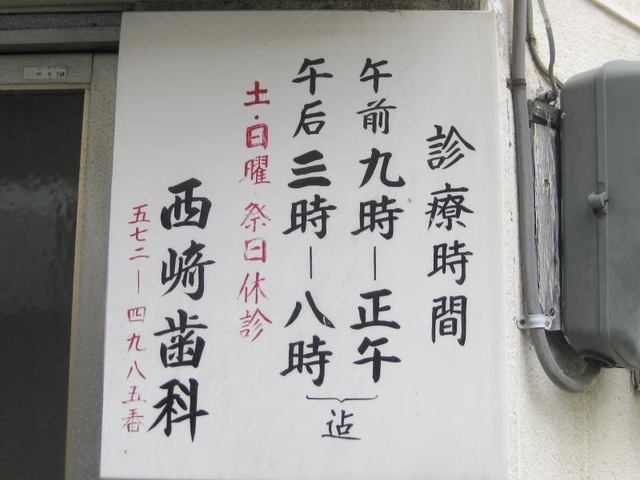 診療時間
午前九時―正午
午后三時―八時
迠
土・日曜祭日休診
西崎歯科
五七二―四九八五番